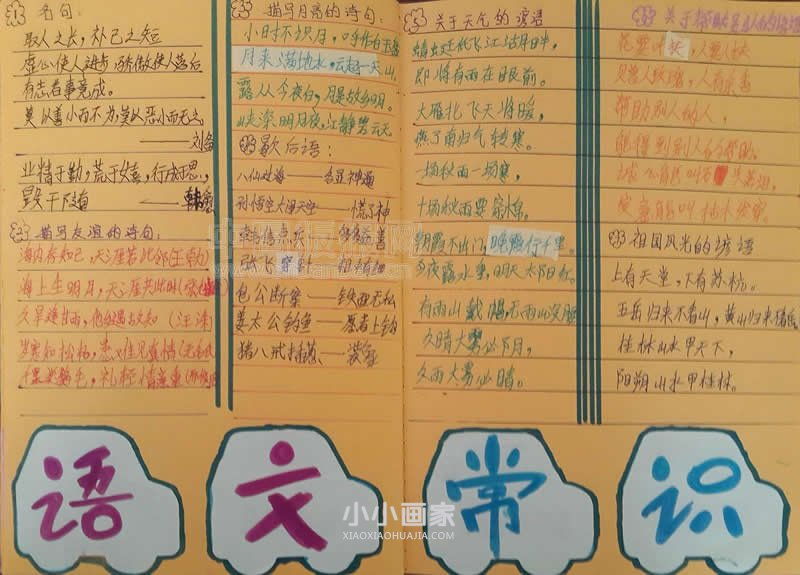 名句:
取人之长,补己之短
虚心使人进步,骄傲使人落后
有志者事竟成。
莫以善小而不为,莫以恶小而为之
——刘备
业精于勤,荒于嬉,行成于思,
毁于随
——韩愈
描写友谊的诗句:
海内存知己,天涯若比邻(王勃)
海上生明月,天涯共此时
久旱逢甘雨,他乡遇故知(汪洙)
岁寒知松柏,患难见真情
千里送鹅毛,礼轻情意重
描写月亮的诗句:
小时不识月,呼作白玉盘
月来满地水,云起一天山
露从今夜白,月是故乡明。
歇后语:
八仙过海——各显神通
孙悟空大闹天空——慌了神
韩信点兵——多多益善
张飞穿针——粗中有细
包公断案——铁面无私
姜太公钓鱼——愿者上钩
猪八戒
关于天气的谚语
即将有雨在眼前。
大雁北飞天将暖,
燕子南归气转寒。
一场秋雨一场寒,
十场秋雨要穿棉。
朝霞不出门,晚霞行千里。
有雨山戴帽,无雨山没腰
久晴大雾必下月,
久雨大雾必晴。
关于帮助
花要叶扶,人要人扶
帮助别人的人,
能得到别人的帮助。
祖国风光的谚语
上有天堂,下有苏杭。
五岳归来不看山,黄山归来不看岳
桂林山水甲天下,
阳朔山水甲桂林。
语文常识
小小画家
XIAOXIAOHUAJIA.COM